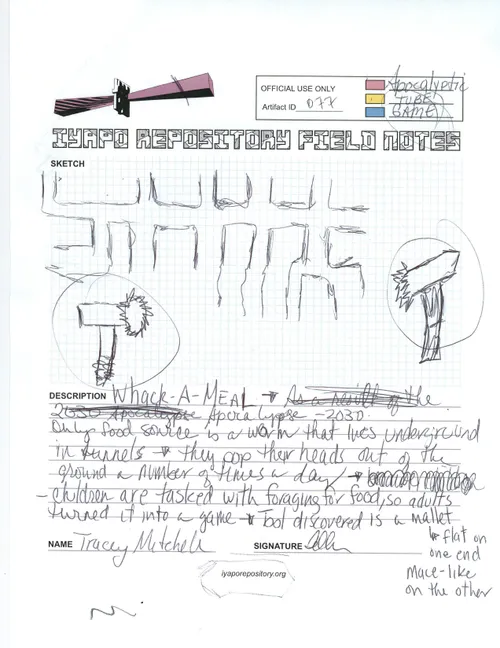 OFFICIAL USE ONLY
Artifact ID 077
Apocalyptic
TUBE
GAME
IYAPO REPOSITORY FIELD NOTES
SKETCH
DESCRIPTION WHACK-A-MEAL → As a result of the
2030 Apocalypse Apocalypse - 2030.
Only food source is a worm that lives underground
in tunnels → they pop their heads out of the
ground a number of times a day →
- Children are tasked with foraging for food, so adults
turned it into a game → Tool discovered is a mallet
↳ flat on
one end
mace-like
on the other
NAME Tracey Mitchell SIGNATURE
iyaporepository.org